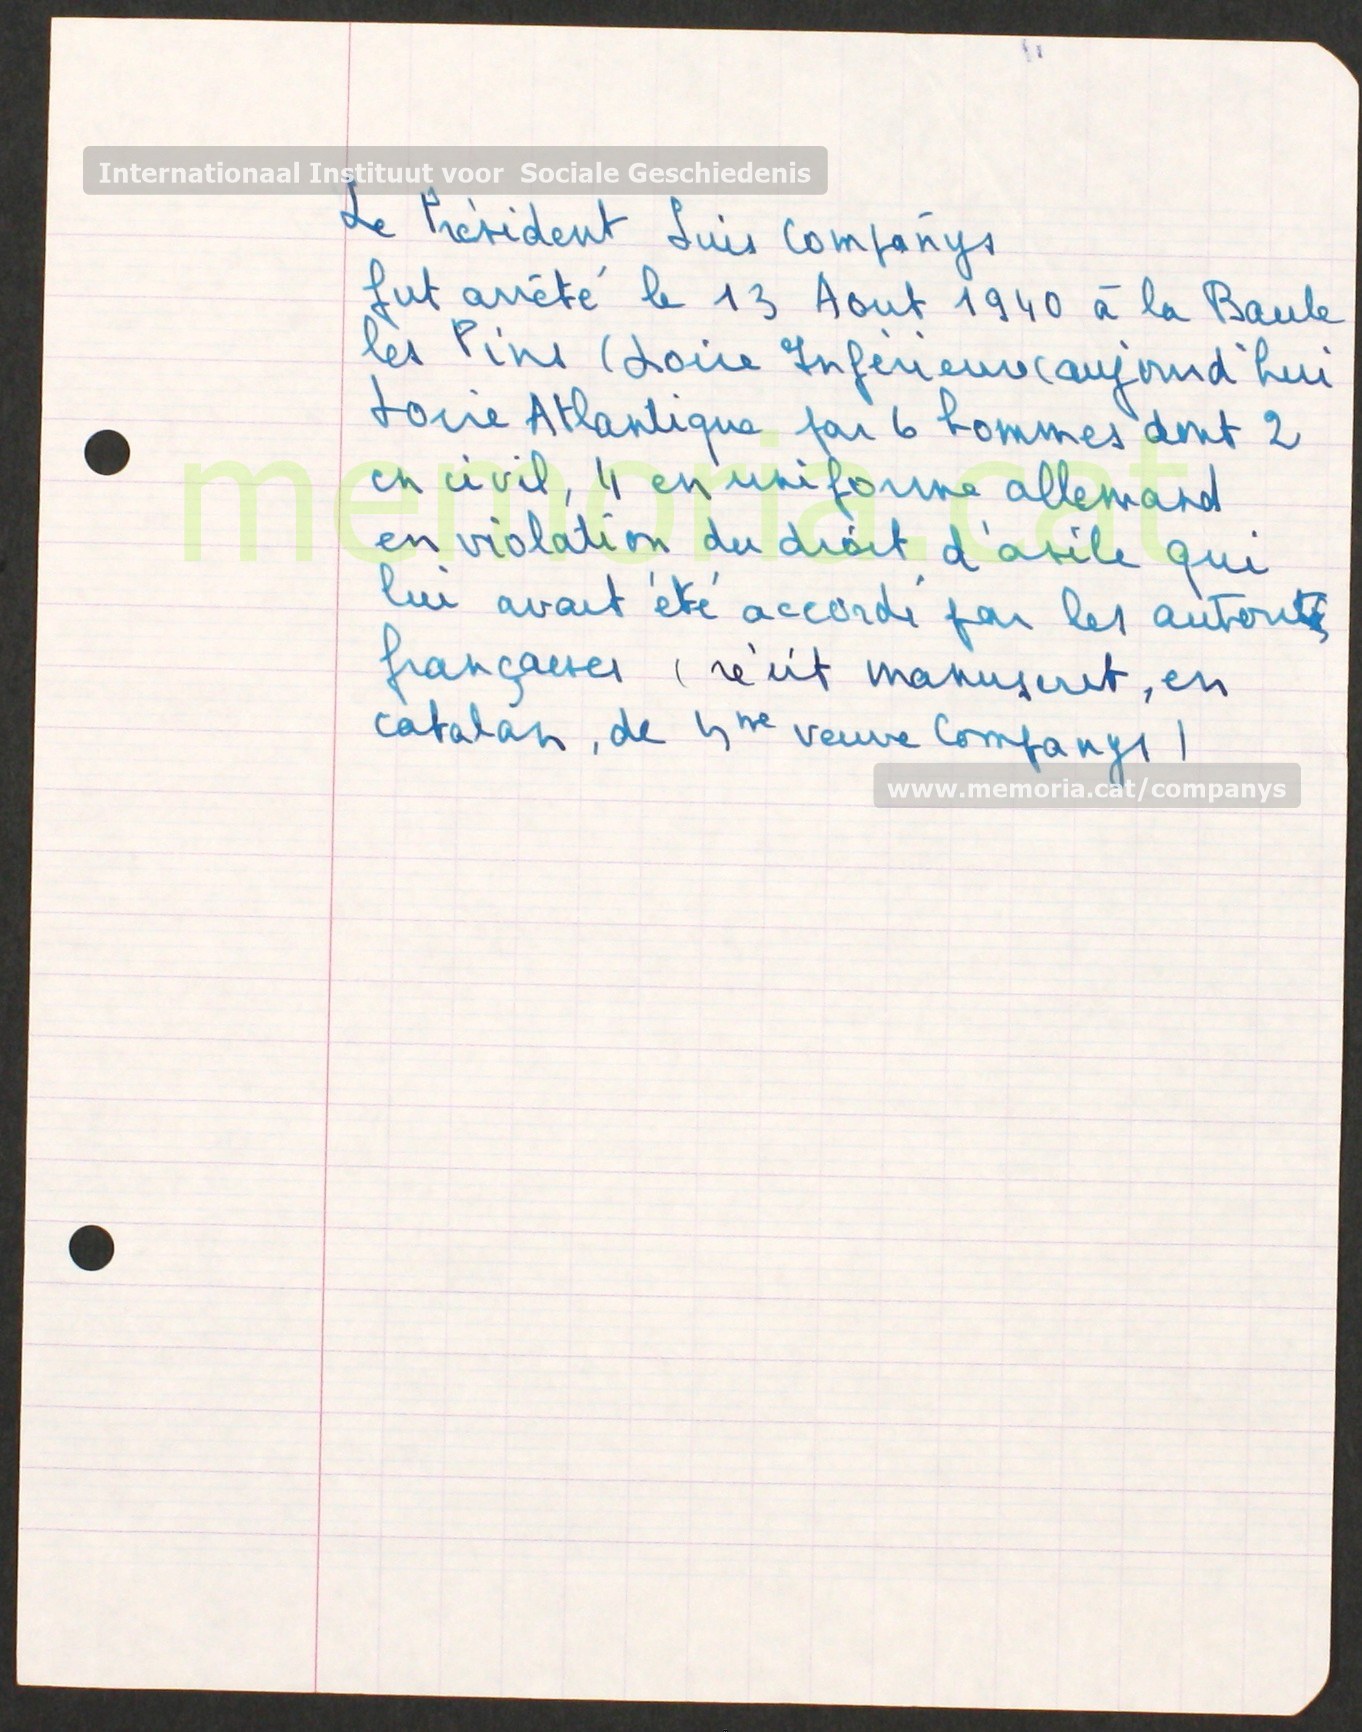 Internationaal Instituut voor Sociale Geschiedenis
Le Président Luis Compañys
fut arrêté le 13 Aout 1940 à la Baule
les Pins (Loire Inférieure (aujourd'hui
Loire Atlantique par 6 hommes dont 2
en civil, 4 en uniforme allemand
en violation du droit d'asile qui
lui avait été accordé par les autorités
françaises (récit manuscrit, en
catalan, de Mme veuve Companys)
memoria.cat
www.memoria.cat/companys